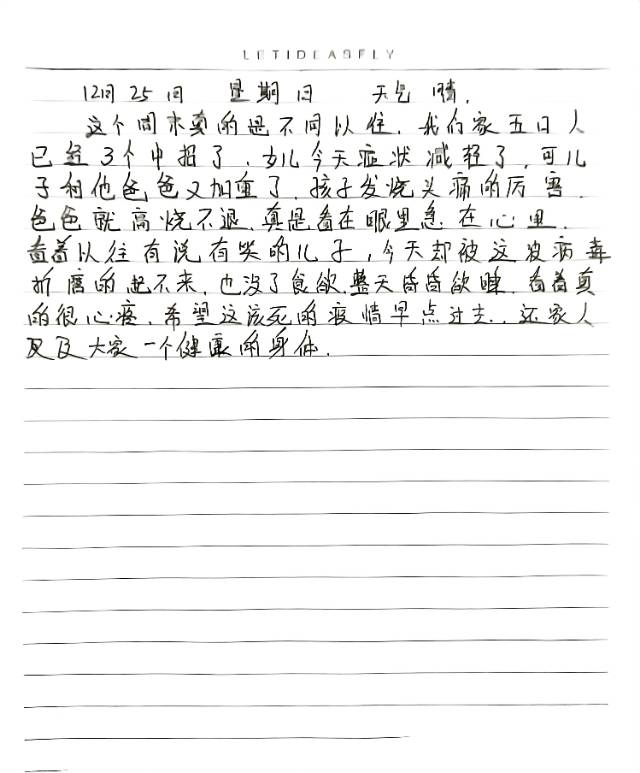 LETIDEASFLY
12月25日 星期日 天气 晴.
这个周末真的是不同以往.我们家五口人
已经3个中招了.女儿今天症状减轻了,可儿
子和他爸爸又加重了.孩子发烧头痛的厉害.
爸爸就高烧不退.真是看在眼里急在心里.
看着以往有说有笑的儿子,今天却被这波病毒
折磨的起不来.也没了食欲.整天昏昏欲睡.看着真
的很心疼.希望这该死的疫情早点过去.还家人
及大家一个健康的身体.